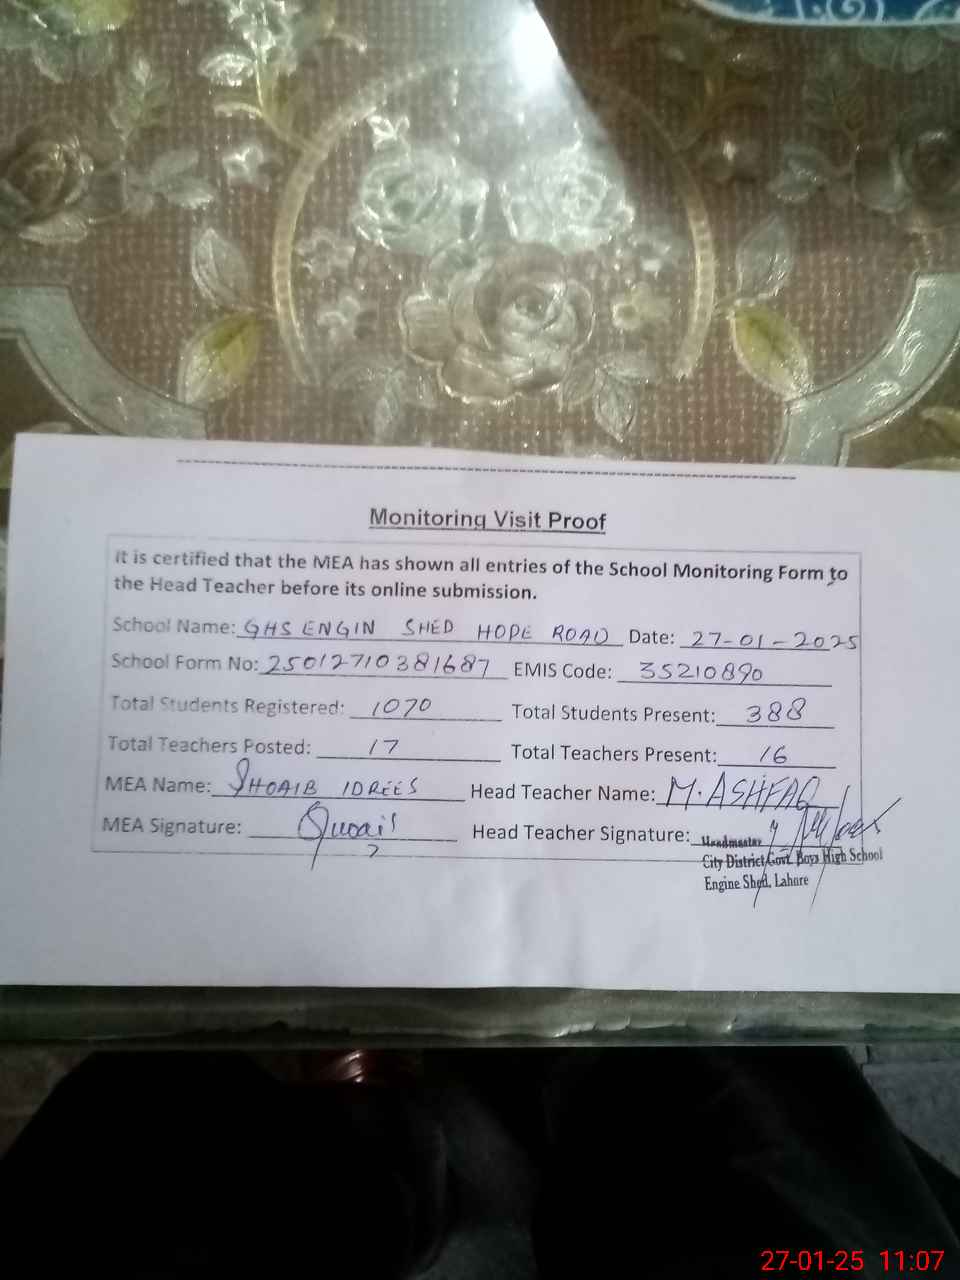 Monitoring Visit Proof
It is certified that the MEA has shown all entries of the School Monitoring Form to
the Head Teacher before its online submission.
School Name: GHS ENGIN SHED HOPE ROAD Date: 27-01-2025
School Form No: 25012710381687 EMIS Code: 35210890
Total Students Registered: 1070 Total Students Present: 388
Total Teachers Posted: 17 Total Teachers Present: 16
MEA Name: SHOAIB IDREES Head Teacher Name: M. ASHFAQ
MEA Signature: Head Teacher Signature:
Headmaster
City District Govt. Boys High School
Engine Shed, Lahore
27-01-25 11:07